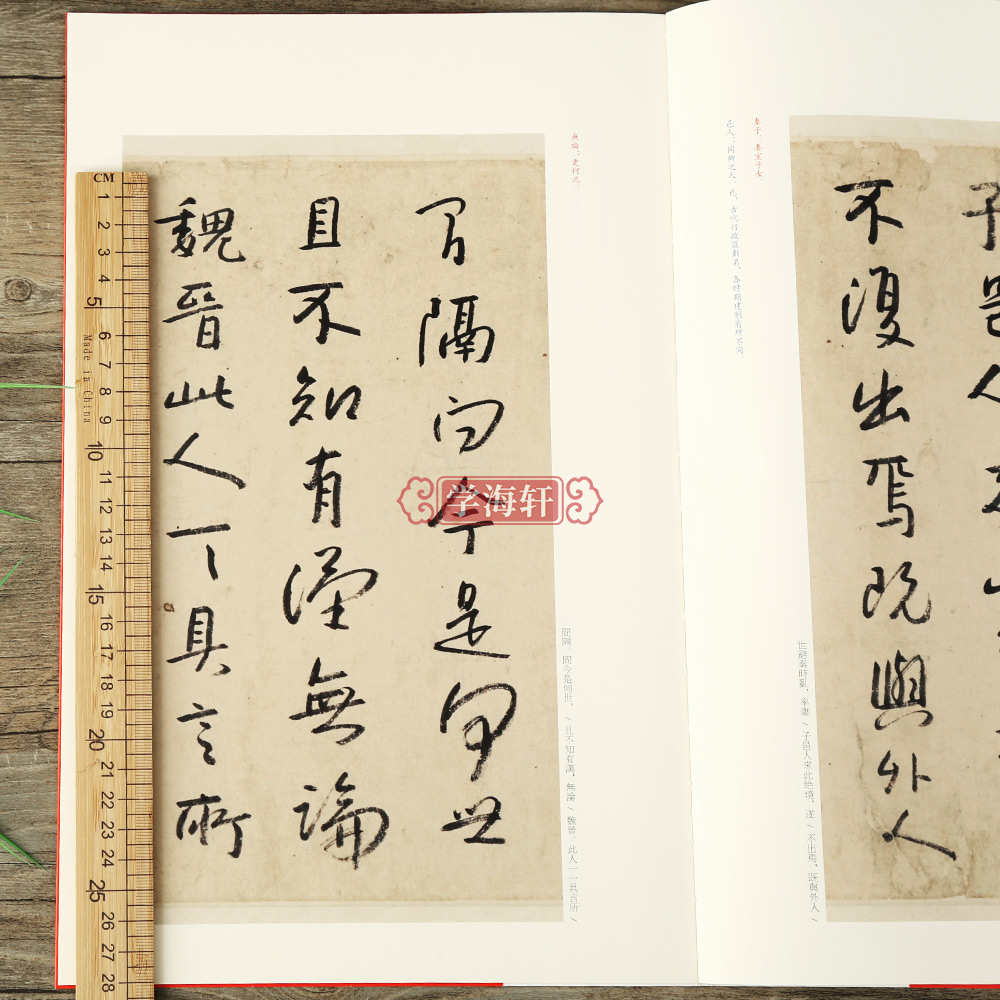 不復出焉既與外人
妻子：妻室子女。
邑人：同鄉之人　邑，古代行政區劃名，各時期建制有所不同
世避秦時亂，率妻\子邑人來此絕境，遂\不出焉，既與外人\
無論：更何況。
間隔，問今是何世，\且不知有漢，無論\魏晉，此人一一具言所\
間隔問今是何世
且不知有漢無論
魏晉此人一一具言所
学海轩
CM
1
2
3
4
5
6
7
8
9
10
11
12
13
14
15
16
17
18
19
20
21
22
23
24
25
26
27
28
Made in China